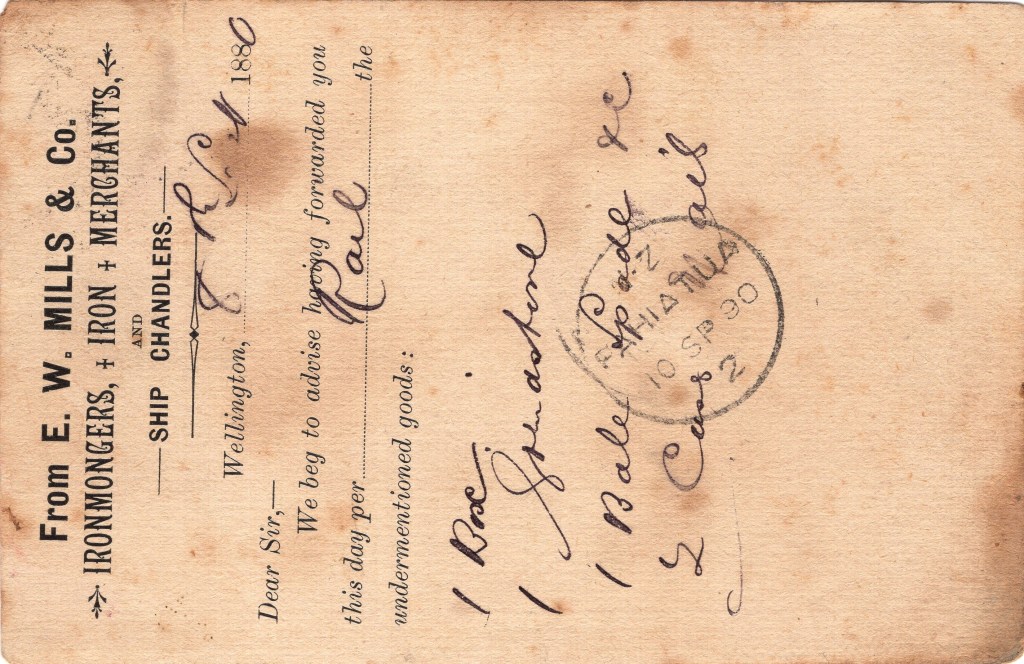 From E. W. MILLS & Co.
IRONMONGERS, IRON MERCHANTS,
AND
SHIP CHANDLERS.
Wellington, 8 1880
Dear Sir,—
We beg to advise having forwarded you
this day per Rail the
undermentioned goods:
1 Box
1 Grindstone
1 Bale Spade &c
2 Cans oil
PAHIATUA N.Z
10 SP 90
2